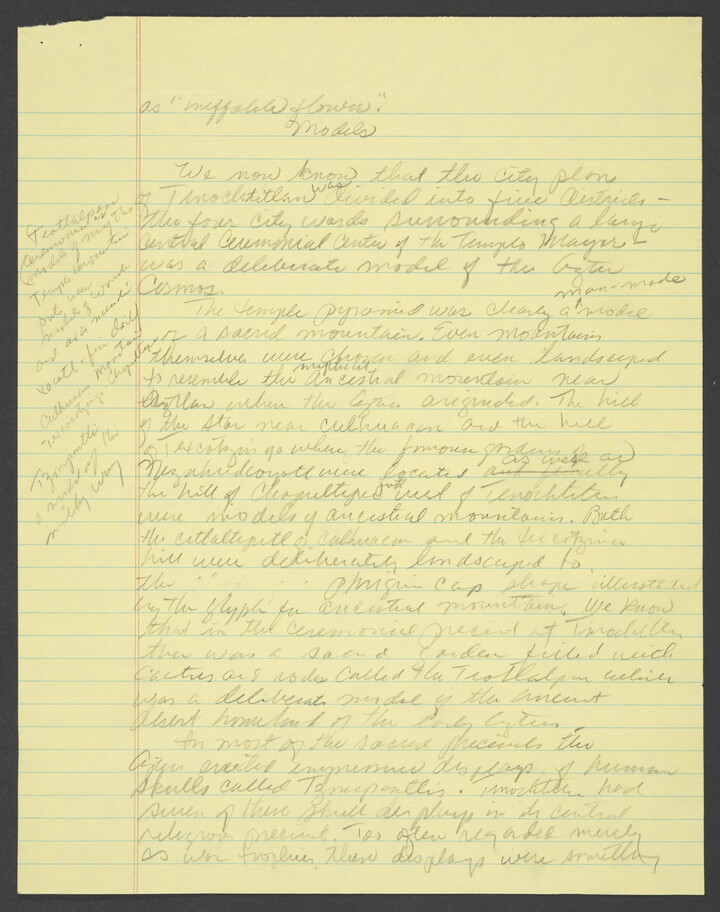 as "ineffable flower".
Models
We now know that the city plan
of Tenochtitlan was divided into five districts -
the four city wards surrounding a large
central Ceremonial Center of the Templo Mayor -
was a deliberate model of the Aztec
Cosmos.
The temple pyramid was clearly a man-made model
of a sacred mountain. Even mountains
themselves were chosen and even landscaped
to resemble the mythical Ancestral mountain near
Aztlan where the Aztecs originated. The hill
of the Star near Culhuacan and the hill
of Texcotzingo where the famous gardens
were located as well as
the hill of Chapultepec just west of
were models of ancestral mountains. Both
the of Culhuacan and the
hill were deliberately landscaped to
the cap shape illustrated
by the glyph for ancestral mountain. We know
that in the ceremonial precinct at
there was a sacred garden filled with
Cactus and called the Teotlalpan which
was a deliberate model of the ancient
desert homeland of the early Aztecs.
In most of the sacred precincts the
Aztecs erected impressive displays of human
skulls called Tzompantlis. had
seven of these skull displays in its central
religious precinct. Too often regarded merely
as war trophies, these displays were something
Teotlalpan
models of
Temple mountain
Culhuacan Mountain
Texcotzingo Chapultepec
Tzompantli
a model of the
milky way